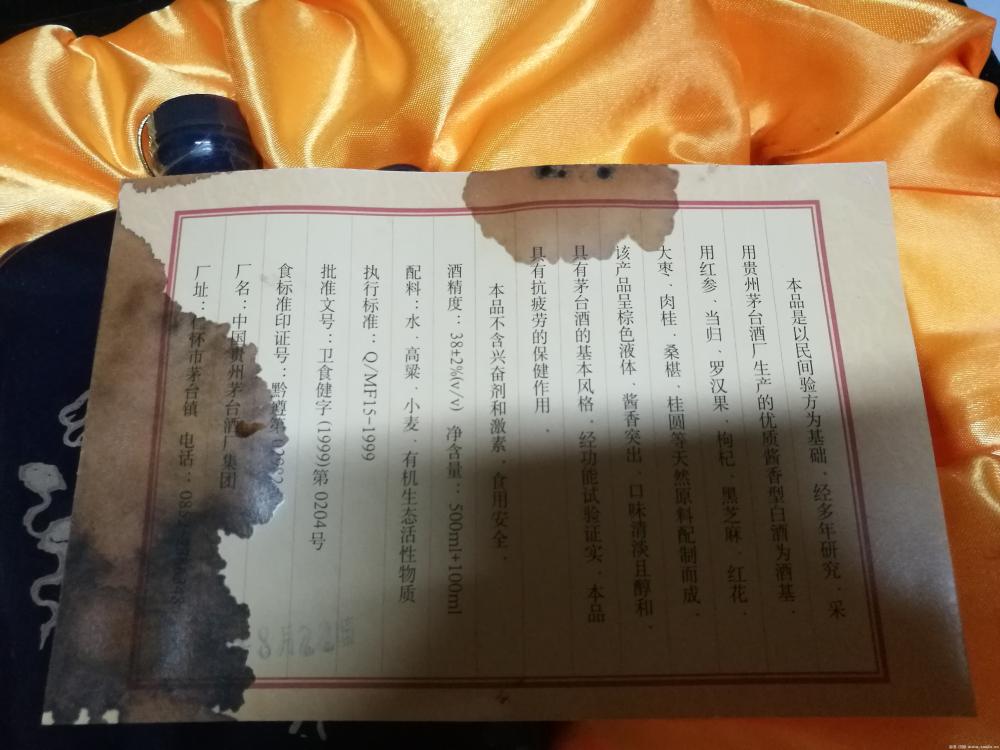 本品是以民间验方为基础，经多年研究，采
用贵州茅台酒厂生产的优质酱香型白酒为酒基，
用红参、当归、罗汉果、枸杞、黑芝麻、红花、
大枣、肉桂、桑椹、桂圆等天然原料配制而成，
该产品呈棕色液体、酱香突出、口味清淡且醇和，
具有茅台酒的基本风格，经功能试验证实，本品
具有抗疲劳的保健作用．
本品不含兴奋剂和激素，食用安全．
酒精度：38±2%(v/v) 净含量：500ml+100ml
配料：水、高粱、小麦、有机生态活性物质
执行标准：Q/MF15-1999
批准文号：卫食健字(1999)第0204号
食标准印证号：黔鳟第
厂名：中国贵州茅台酒厂集团
厂址：仁怀市茅台镇 电话：
8月22